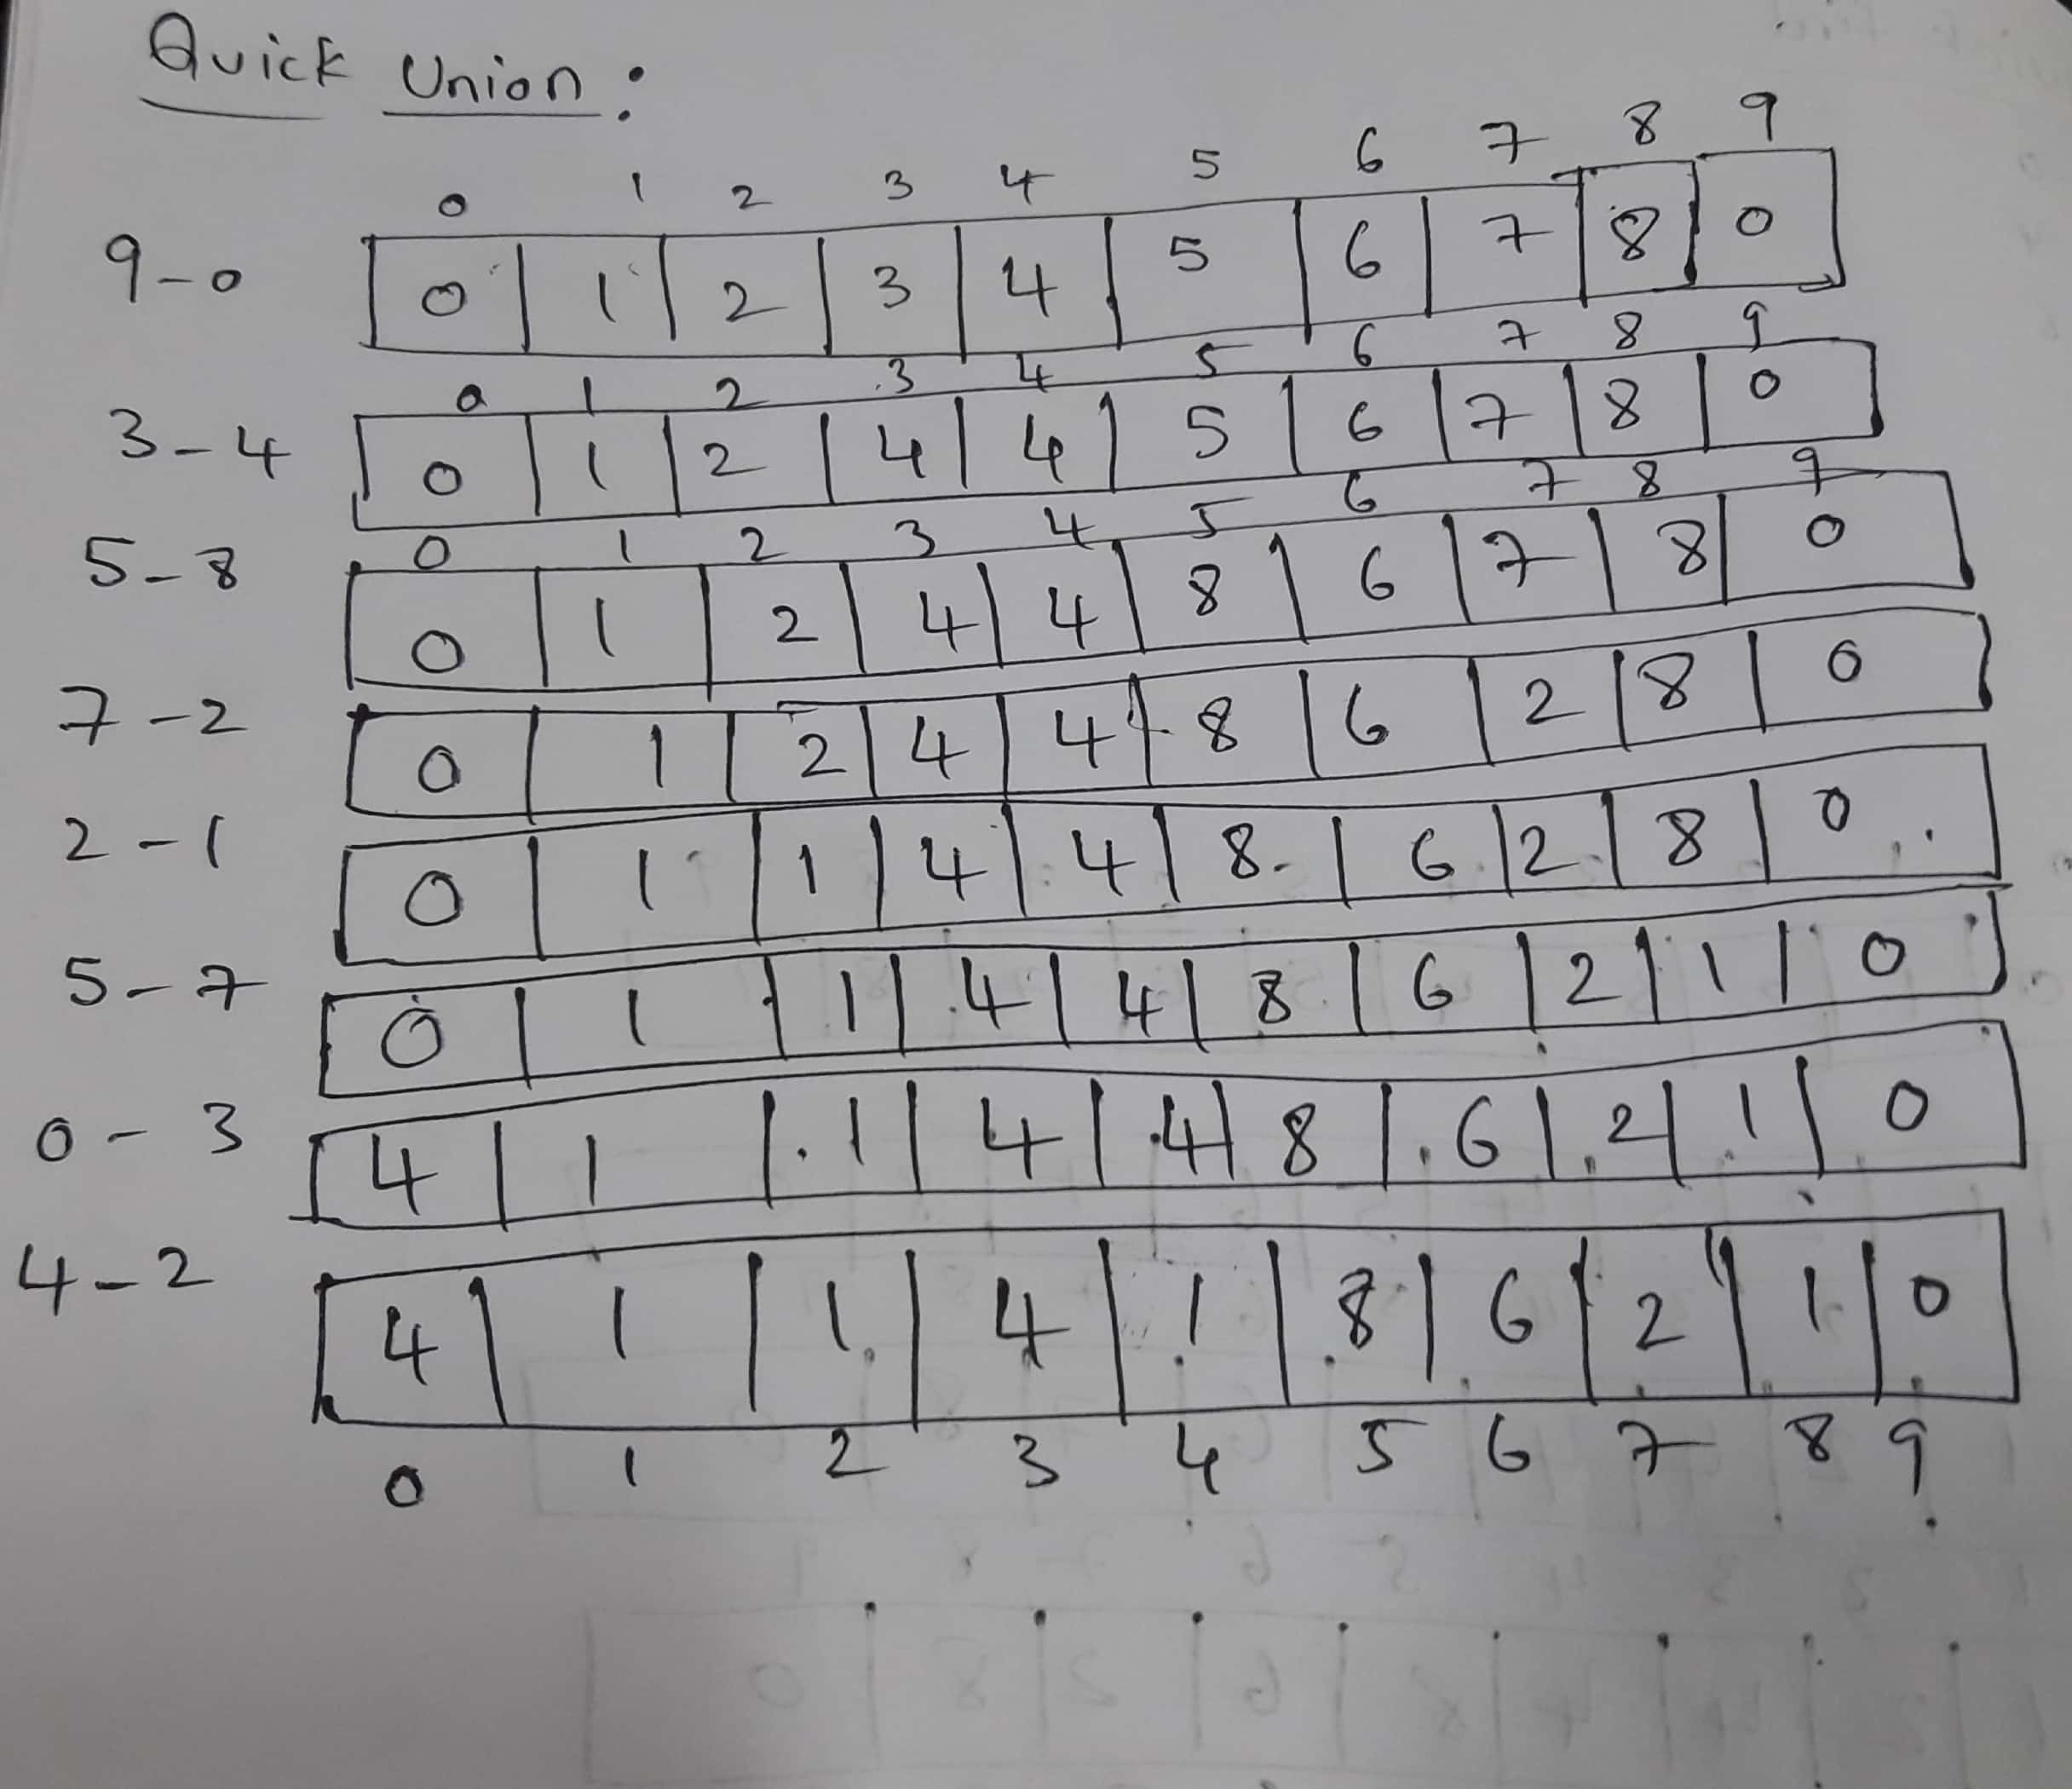 Quick Union:
0 1 2 3 4 5 6 7 8 9
9-0 0 1 2 3 4 5 6 7 8 0
0 1 2 3 4 5 6 7 8 9
3-4 0 1 2 4 4 5 6 7 8 0
0 1 2 3 4 5 6 7 8 9
5-8 0 1 2 4 4 8 6 7 8 0
7-2 0 1 2 4 4 8 6 2 8 0
2-1 0 1 1 4 4 8 6 2 8 0
5-7 0 1 1 4 4 8 6 2 1 0
0-3 4 1 1 4 4 8 6 2 1 0
4-2 4 1 1 4 1 8 6 2 1 0
0 1 2 3 4 5 6 7 8 9